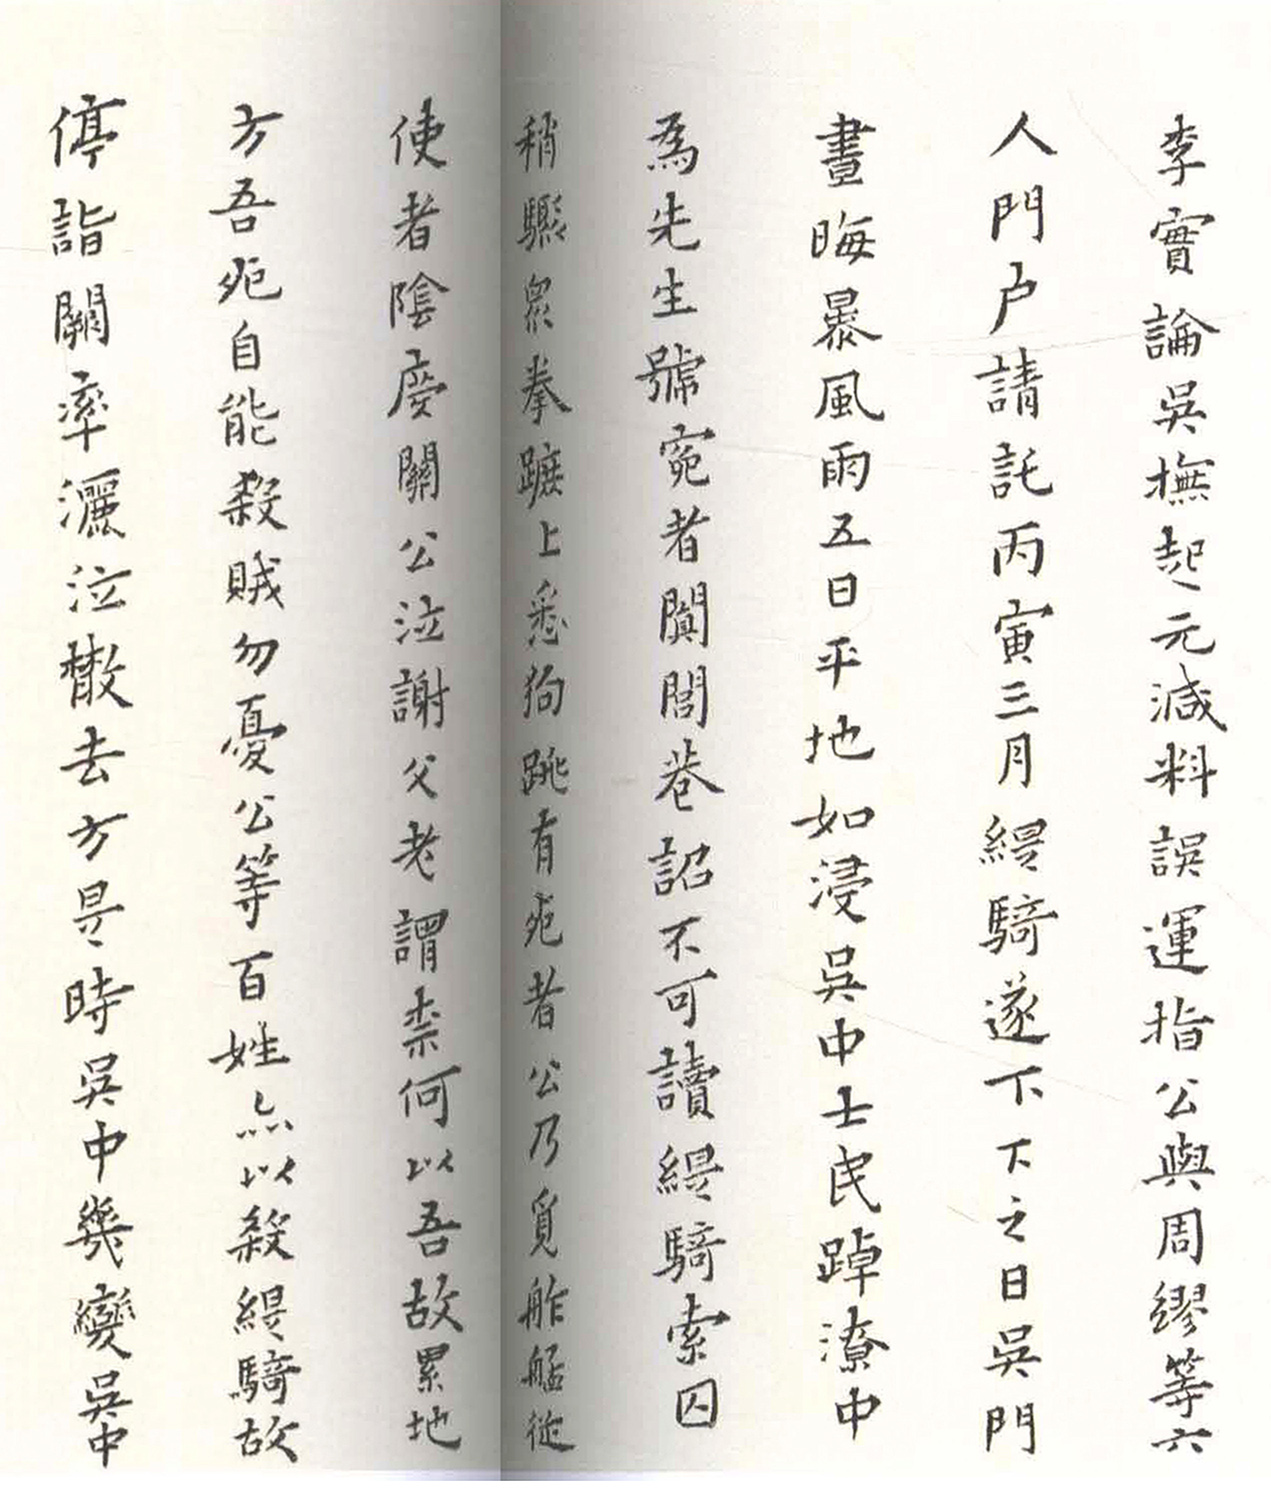 李實論吳撫起元減料誤運指公與周繆等六
人門户請託丙寅三月緹騎遂下下之日吳門
晝晦暴風雨五日平地如浸吳中士民踔潦中
為先生號寃者闐閭巷詔不可讀緹騎索囚
稍驟眾拳蹠上悉狗跳有死者公乃覓舴艋從
使者陰度關公泣謝父老謂柰何以吾故累地
方吾死自能殺賊勿憂公等百姓亦以殺緹騎故
停詣闕率灑泣散去方是時吳中幾變吳中